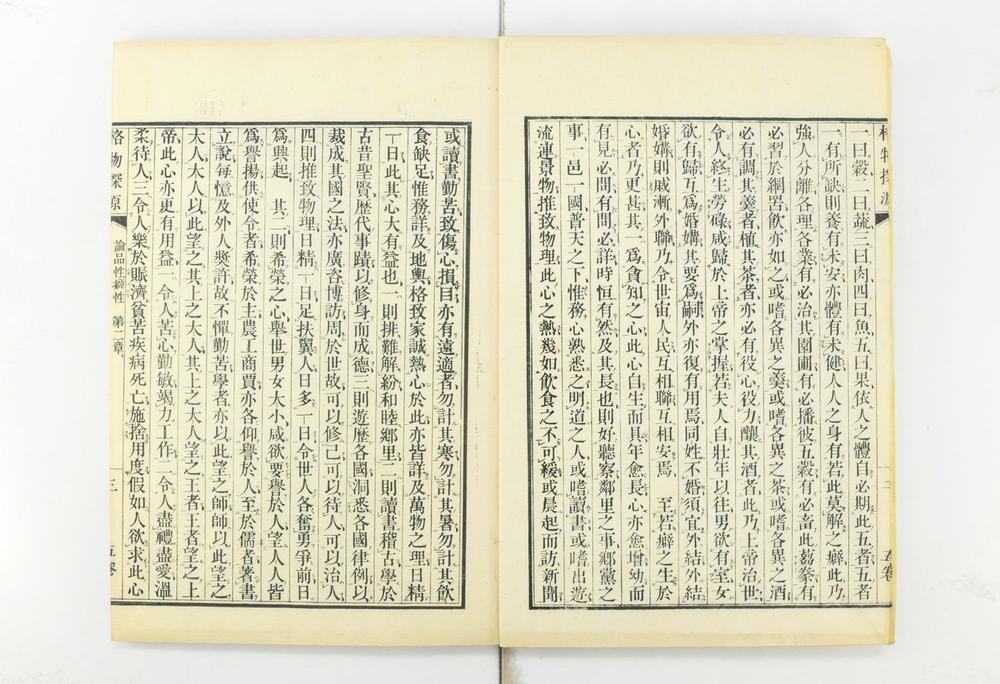 一曰穀二曰蔬三曰肉四曰魚五曰果依人之體自必期此五者五者
一有所缺則養有未安亦體有未健人人之身有若此莫解之癖此乃
強人分離各理各業有必治其園圃有必播彼五穀有必畜此芻豢有
必習於網罟飲亦如之或嗜各異之羹或嗜各異之茶或嗜各異之酒
必有調其羹者植其茶者亦必有役心役力釀其酒者此乃上帝治世
令人終生勞碌咸歸於上帝之掌握若夫人自壯年以往男欲有室女
欲有歸互爲婚媾其要爲嗣外亦復有用焉同姓不婚須宜外結外結
婚媾則戚漸外聯乃令世宙人民互相聯互相安焉 至若癖之生於
心者乃更甚其一爲貪知之心此心自生而具年愈長心亦愈增幼而
有見必問有問必詳時恒有然及其長也則好聽察鄰里之事鄉黨之
事一邑一國普天之下惟務心熟悉之明道之人或嗜讀書或嗜出遊
流連景物推致物理此心之熱幾如飲食之不可緩或晨起而訪新聞
三
五卷
或讀書勤苦致傷心損目亦有遠適者勿計其寒勿計其暑勿計其飲
食缺足惟務詳及地輿格致家誠熱心於此亦皆詳及萬物之理日精
一日此其心大有益也一則排難解紛和睦鄉里二則讀書稽古學於
古昔聖賢歷代事蹟以修身而成德三則遊歷各國洞悉各國律例以
裁成其國之法亦廣咨博訪周於世故可以修己可以待人可以治人
四則推致物理日精一日足扶翼人日多一日令世人各奮勇爭前日
爲興起 其二則希榮之心舉世男女大小咸欲要譽於人望人人皆
爲譽揚供使令者希榮於主農工商賈亦各仰譽於人至於儒者著書
立說每憶及外人奬許故不憚勤苦學者亦以此望之師師以此望之
大人大人以此望之其上之大人其上之大人望之王者王者望之上
帝此心亦更有用益一令人苦心勤敏竭力工作二令人盡禮盡愛溫
柔待人三令人樂於賑濟貧苦疾病死亡施捨用度假如人欲求此心
格物探原 論品性癖性 第二章 三 五卷